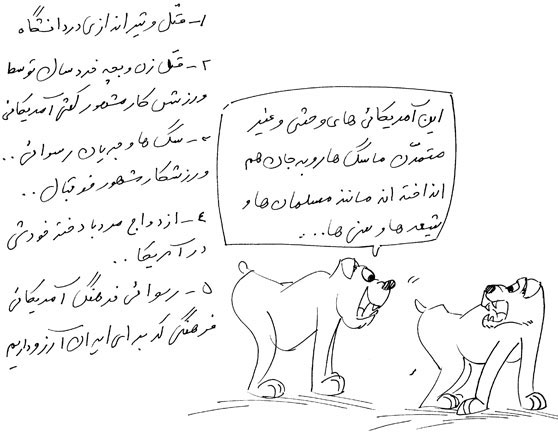 ۱- قتل و تیراندازی در دانشگاه
۲- قتل زن و بچه خردسال توسط
ورزشکار مشهور کشتی آمریکائی
۳- سگ ها و جریان رسوائی ..
ورزشکار مشهور فوتبال ..
۴- ازدواج مرد با دختر خودش
در آمریکا ..
۵- رسوائی فرهنگ آمریکائی
فرهنگی که برای ایران آرزو داریم
این آمریکائی های وحشی و غیر
متمدن ما سگ ها رو به جان هم
انداخته اند مانند مسلمان ها و
شیعه ها و سنی ها ...